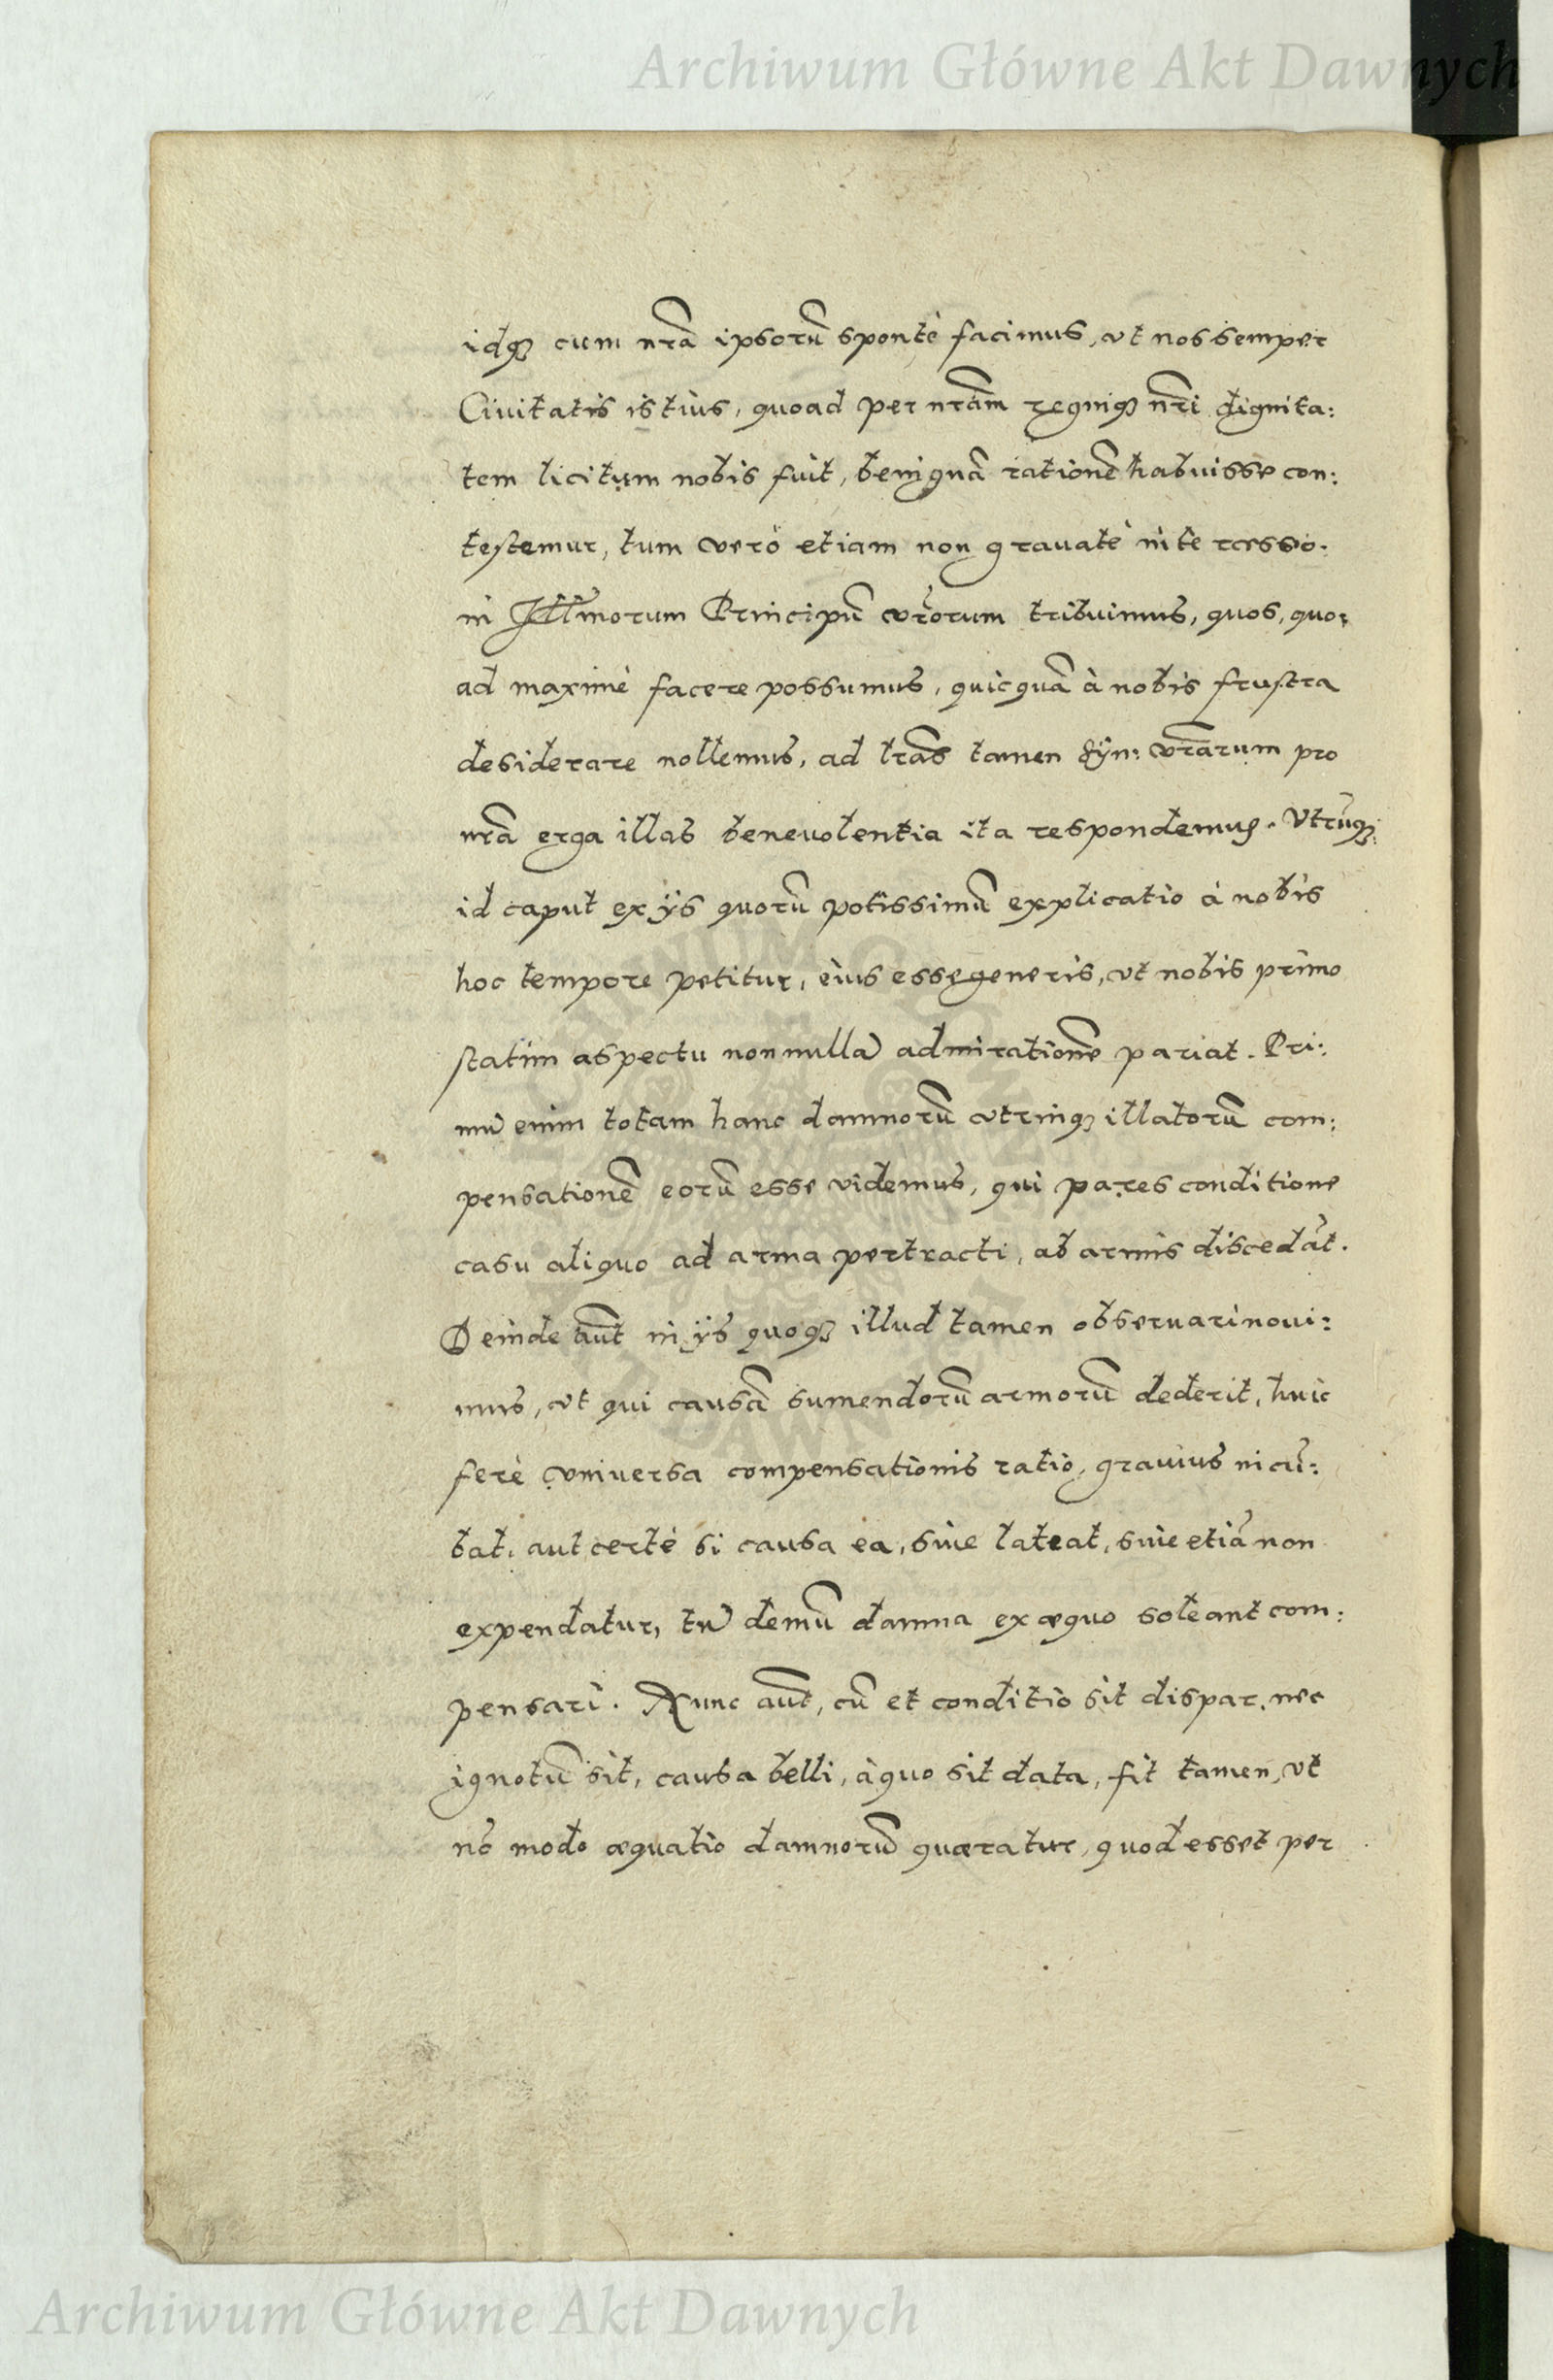 Archiwum Główne Akt Dawnych
idq₃ cum nr̃a ipsorũ spontè facimus, vt nos semper
Ciuitatis istius, quoad per nr̃am regniq₃ nr̃i dignita:
tem licitum nobis fuit, benignã rationẽ habuisse con:
testemur, tum verò etiam non grauatè intercessio:
ni Illmorum Principũ vr̃orum tribuimus, quos, quo:
ad maximè facere possumus, quicquã à nobis frustra
desiderare nollemus, ad lr̃as tamen Syn: vr̃arum pro
nr̃a erga illas beneuolentia ita respondemus. Vtrũq₃
id caput ex ijs quorũ potissimũ explicatio à nobis
hoc tempore petitur, eius esse generis, vt nobis primo
statim aspectu nonnullã admirationẽ pariat. Pri:
mũ enim totam hanc damnorũ vtrinq₃ illatorũ com:
pensationẽ eorũ esse videmus, qui pares conditione
casu aliquo ad arma pertracti, ab armis discedãt.
Deinde aũt in ijs quoq₃ illud tamen obseruari noui:
mus, vt qui causã sumendorũ armorũ dederit, huic
ferè vniuersa compensationis ratio, grauius incũ:
bat, aut certè si causa ea, siue lateat, siue etiã non
expendatur, tũ demũ damna ex æquo soleant com:
pensari. Nunc aũt, cũ et conditio sit dispar, nec
ignotũ sit, causa belli, à quo sit data, fit tamen, vt
nõ modo æquatio damnorũ quæratur, quod esset per
Archiwum Główne Akt Dawnych